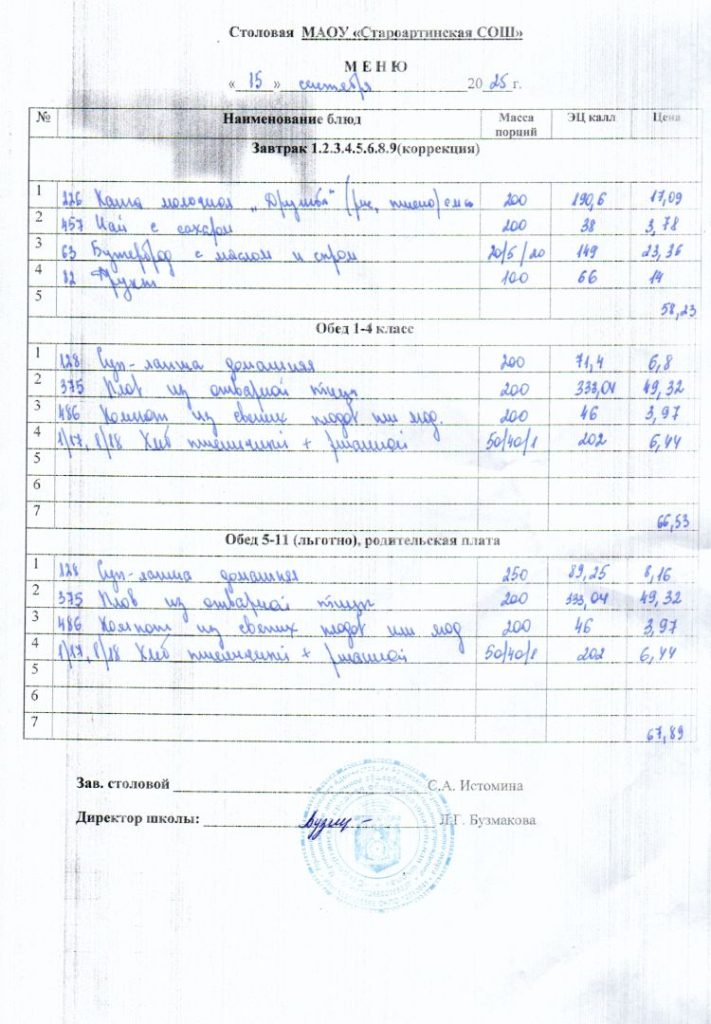 Столовая МАОУ «Староартинская СОШ»
М Е Н Ю
« 15 » сентября 2025 г.
№ Наименование блюд Масса порций ЭЦ калл Цена
Завтрак 1.2.3.4.5.6.8.9(коррекция)
1 226 Каша молочная „Дружба“ (рис, пшено) 200 190,6 17,09
2 457 Чай с сахаром 200 38 3,78
3 63 Бутерброд с маслом и сыром 20/5/20 149 23,36
4 82 Фрукт 100 66 14
5 58,23
Обед 1-4 класс
1 128 Суп-лапша домашняя 200 71,4 6,8
2 375 Плов из отварной птицы 200 333,04 49,32
3 486 Компот из свежих плодов или яод. 200 46 3,97
4 1/17, 1/18 Хлеб пшеничный + ржаной 50/40/1 202 6,44
5
6
7 66,53
Обед 5-11 (льготно), родительская плата
1 128 Суп-лапша домашняя 250 89,25 8,16
2 375 Плов из отварной птицы 200 333,04 49,32
3 486 Компот из свежих плодов или яод 200 46 3,97
4 1/17, 1/18 Хлеб пшеничный + ржаной 50/40/1 202 6,44
5
6
7 67,89
Зав. столовой С.А. Истомина
Директор школы: Л.Г. Бузмакова